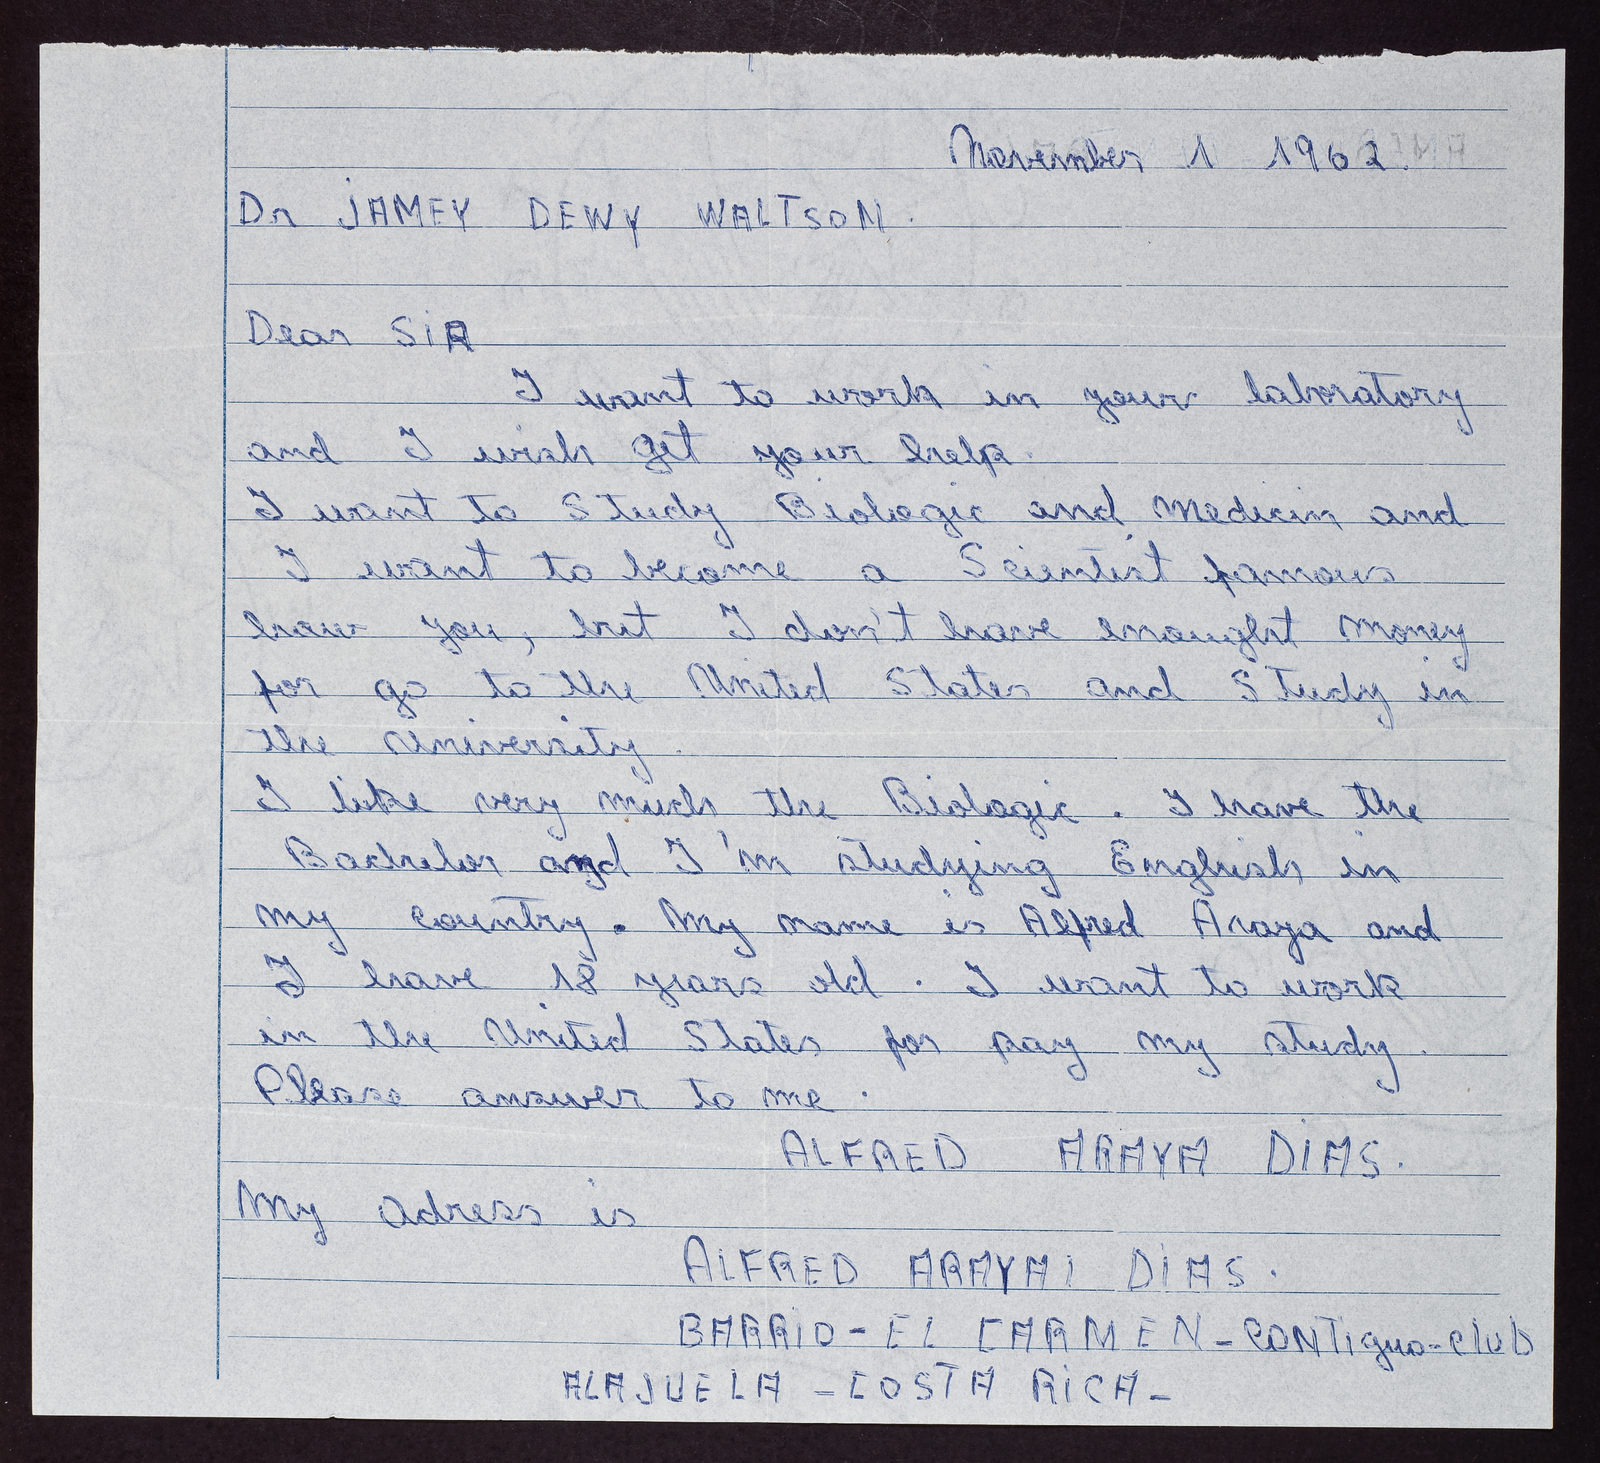 November 1 1962.
Dr JAMEY DEWY WALTSON.
Dear SiR
I want to work in your laboratory
and I wish get your help.
I want to Study Biologic and Medicin and
I want to become a Scientist famous
how you, but I don't have enought Money
for go to the United States and Study in
the University.
I like very much the Biologic. I have the
Bachelor and I'm studying English in
my country. My name is Alfred Araya and
I have 18 years old. I want to work
in the United States for pay my study.
Please answer to me.
ALFRED ARAYA DiAS.
My adress is
ALFRED ARAYAI DiAS.
BARRiO-EL CARMEN-CONTiguo-club
ALAJUELA - COSTA RiCA-